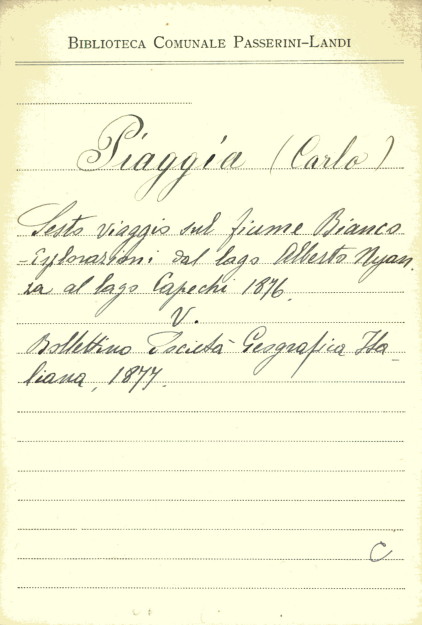 BIBLIOTECA COMUNALE PASSERINI-LANDI
Piaggia (Carlo)
Sesto viaggio sul fiume Bianco
- Esplorazioni dal lago Alberto Nyan
za al lago Capechi 1876.
V.
Bollettino Società Geografica Ita-
liana, 1877.
C